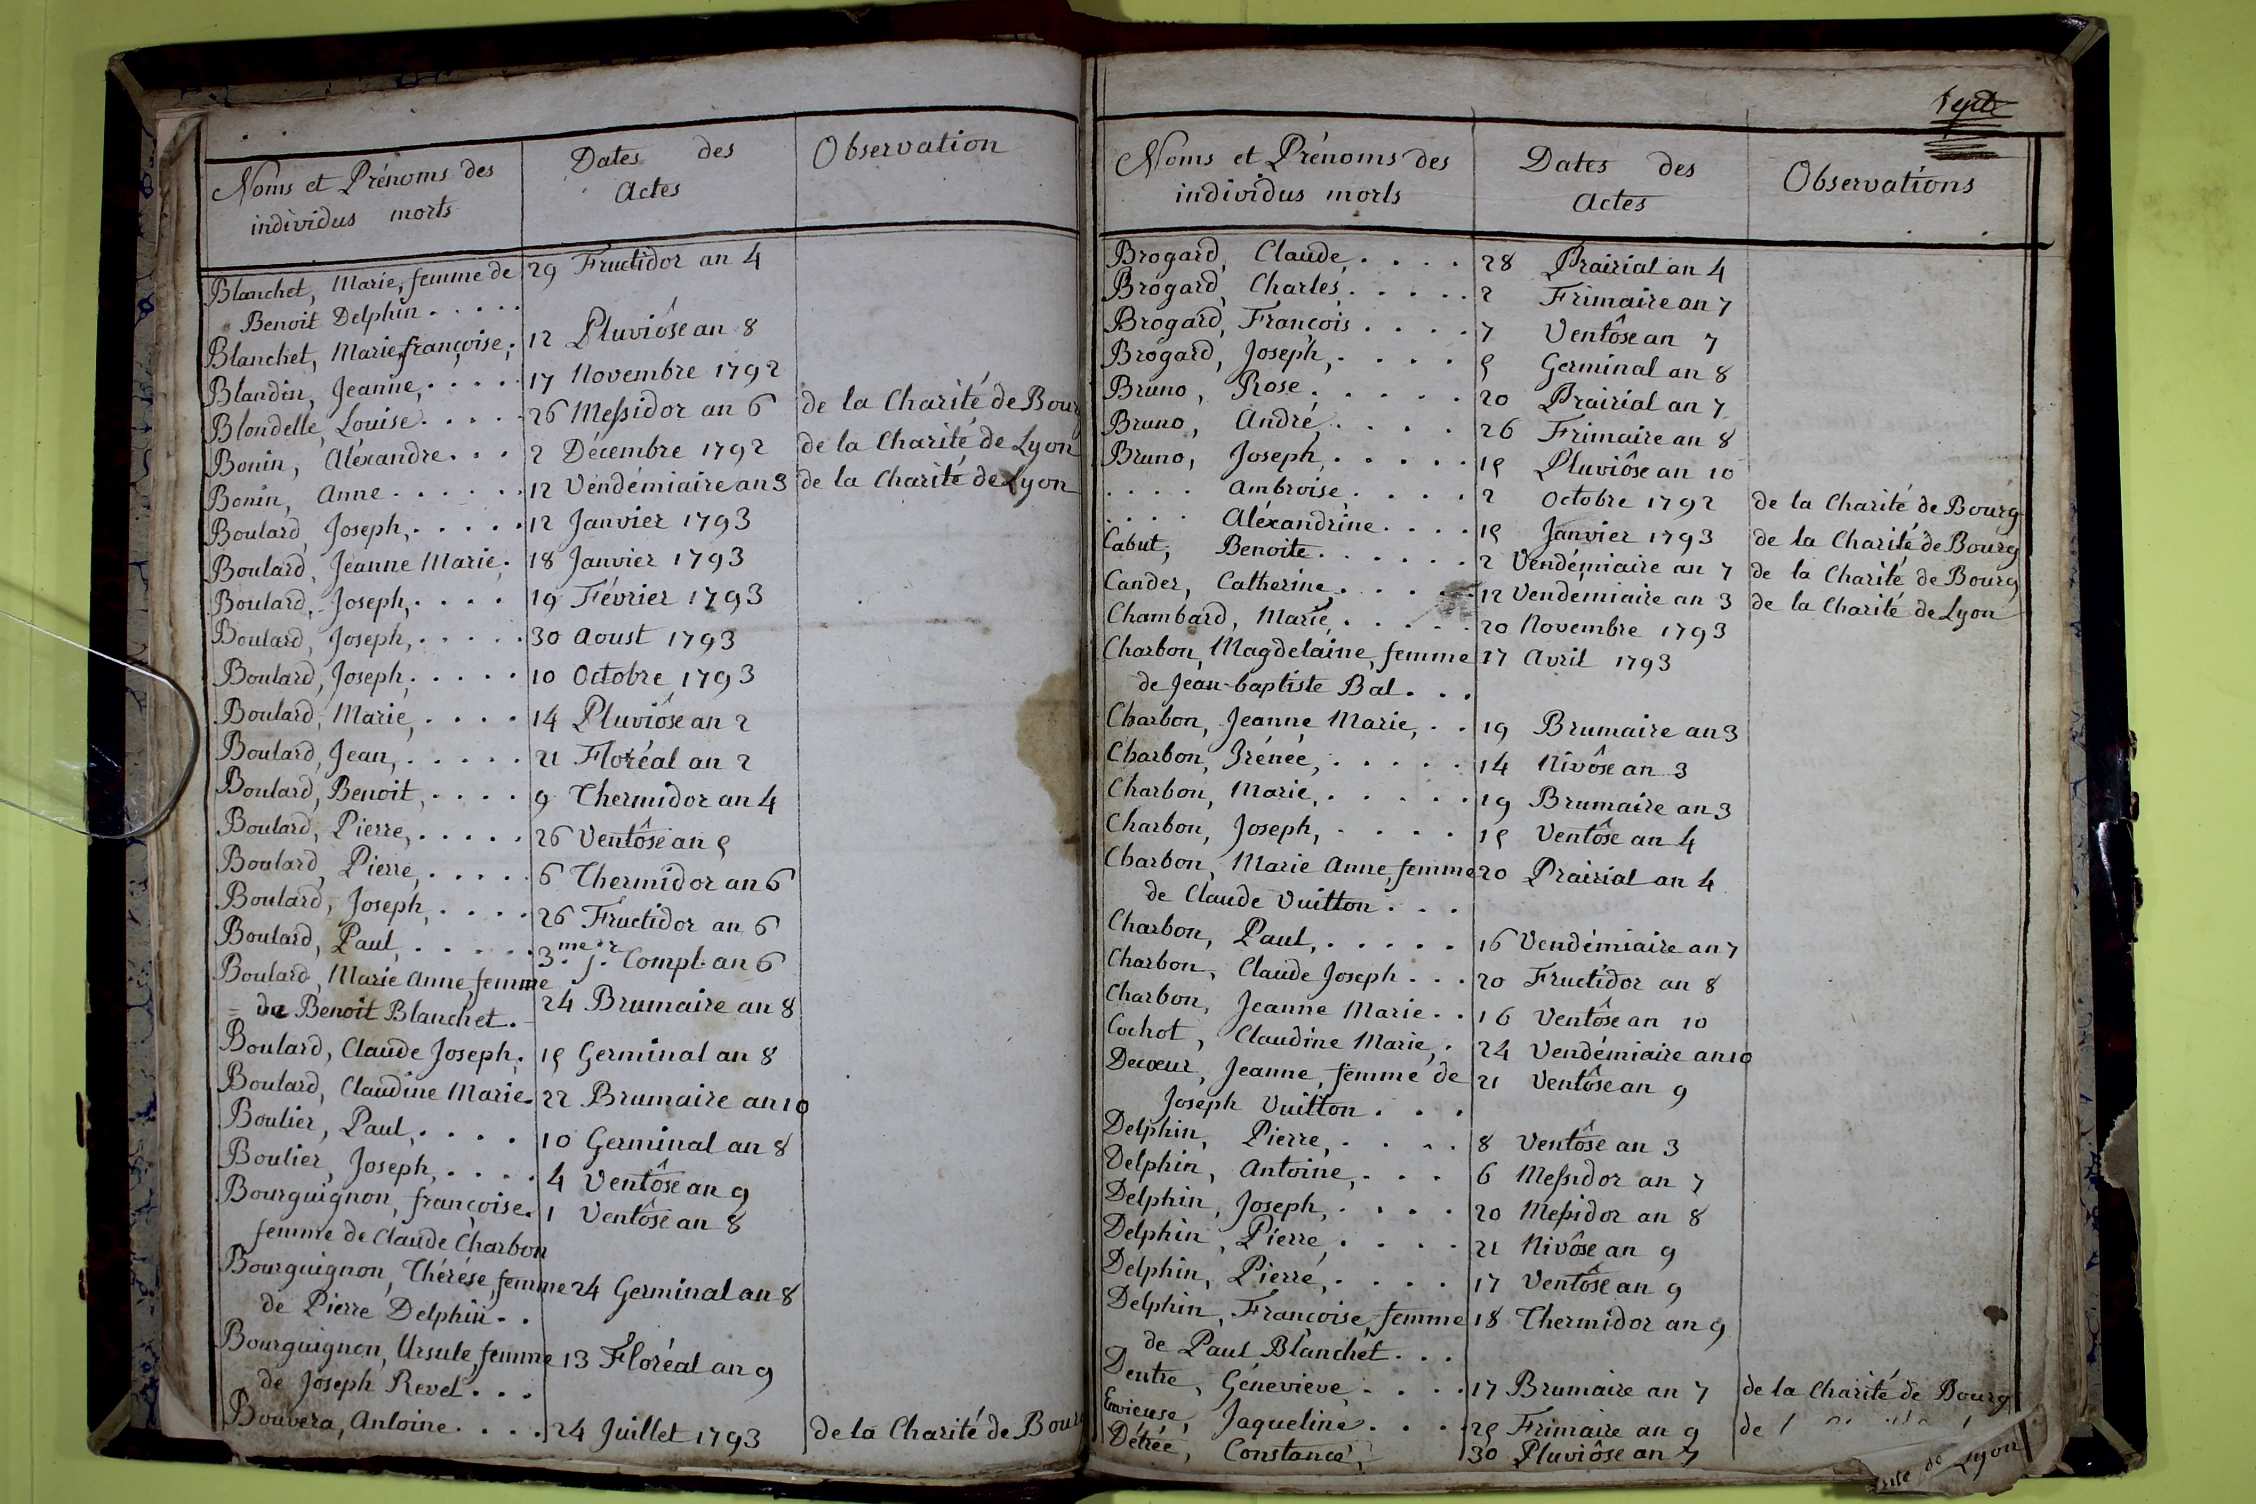 Noms et Prénoms des individus morts
Dates des Actes
Observation
Blanchet, Marie, femme de 29 Fructidor an 4
Benoit Delphin . . . . .
Blanchet, Marie françoise, . 12 Pluviôse an 8
Blandin, Jeanne, . . . . . 17 Novembre 1792
Blondelle, Louise . . . . . 26 Messidor an 6 de la Charité de Bourg
Bonin, Aléxandre . . . 2 Décembre 1792 de la Charité de Lyon
Bonin, Anne . . . . . . 12 Vendémiaire an 3 de la Charité de Lyon
Boulard, Joseph, . . . . . 12 Janvier 1793
Boulard, Jeanne Marie, . 18 Janvier 1793
Boulard, Joseph, . . . . 19 Février 1793
Boulard, Joseph, . . . . . 30 Aoust 1793
Boulard, Joseph, . . . . . 10 Octobre 1793
Boulard, Marie, . . . . 14 Pluviôse an 2
Boulard, Jean, . . . . . 21 Floréal an 2
Boulard, Benoit, . . . . 9 Thermidor an 4
Boulard, Pierre, . . . . . 26 Ventôse an 5
Boulard, Pierre, . . . . . 6 Thermidor an 6
Boulard, Joseph, . . . . 26 Fructidor an 6
Boulard, Paul, . . . . . 3.me j.r Compl. an 6
Boulard, Marie Anne, femme
de Benoit Blanchet. 24 Brumaire an 8
Boulard, Claude Joseph, . 15 Germinal an 8
Boulard, Claudine Marie . 22 Brumaire an 10
Boulier, Paul, . . . . 10 Germinal an 8
Boulier, Joseph, . . . . 4 Ventôse an 9
Bourguignon, françoise . 1 Ventôse an 8
femme de Claude Charbon
Bourguignon, Thérèse, femme 24 Germinal an 8
de Pierre Delphin . .
Bourguignon, Ursule, femme 13 Floréal an 9
de Joseph Revel . . .
Bouvera, Antoine . . . . 24 Juillet 1793 de la Charité de Bourg
Noms et Prénoms des individus morts
Dates des Actes
Observations
Brogard, Claude, . . . . 28 Prairial an 4
Brogard, Charles, . . . . . 2 Frimaire an 7
Brogard, François . . . . 7 Ventôse an 7
Brogard, Joseph, . . . . 5 Germinal an 8
Bruno, Rose, . . . . . 20 Prairial an 7
Bruno, André, . . . . 26 Frimaire an 8
Bruno, Joseph, . . . . . 15 Pluviôse an 10
. . . . Ambroise . . . . 2 Octobre 1792 de la Charité de Bourg
. . . . Aléxandrine . . . . 15 Janvier 1793 de la Charité de Bourg
Cabut, Benoite . . . . . 2 Vendémiaire an 7 de la Charité de Bourg
Cander, Catherine, . . . . . 12 Vendémiaire an 3 de la Charité de Lyon
Chambard, Marie, . . . . . 20 Novembre 1793
Charbon, Magdelaine, femme 17 Avril 1793
de Jean-baptiste Bal . . .
Charbon, Jeanne Marie, . . 19 Brumaire an 3
Charbon, Irénée, . . . . . 14 Nivôse an 3
Charbon, Marie, . . . . . 19 Brumaire an 3
Charbon, Joseph, . . . . 15 Ventôse an 4
Charbon, Marie Anne, femme 20 Prairial an 4
de Claude Vuitton . . .
Charbon, Paul, . . . . . 16 Vendémiaire an 7
Charbon, Claude Joseph . . . 20 Fructidor an 8
Charbon, Jeanne Marie . . 16 Ventôse an 10
Cochot, Claudine Marie, . 24 Vendémiaire an 10
Decœur, Jeanne, femme de 21 Ventôse an 9
Joseph Vuitton . . .
Delphin, Pierre, . . . . 8 Ventôse an 3
Delphin, Antoine, . . . 6 Messidor an 7
Delphin, Joseph, . . . . 20 Messidor an 8
Delphin, Pierre, . . . . 21 Nivôse an 9
Delphin, Pierre, . . . . 17 Ventôse an 9
Delphin, Françoise, femme 18 Thermidor an 9
de Paul Blanchet . . .
Dentre, Géneviève . . . . 17 Brumaire an 7 de la Charité de Bourg
Envieuse, Jaqueline . . . . 25 Frimaire an 9 de
Détrée, Constance, 30 Pluviôse an 7 de Lyon